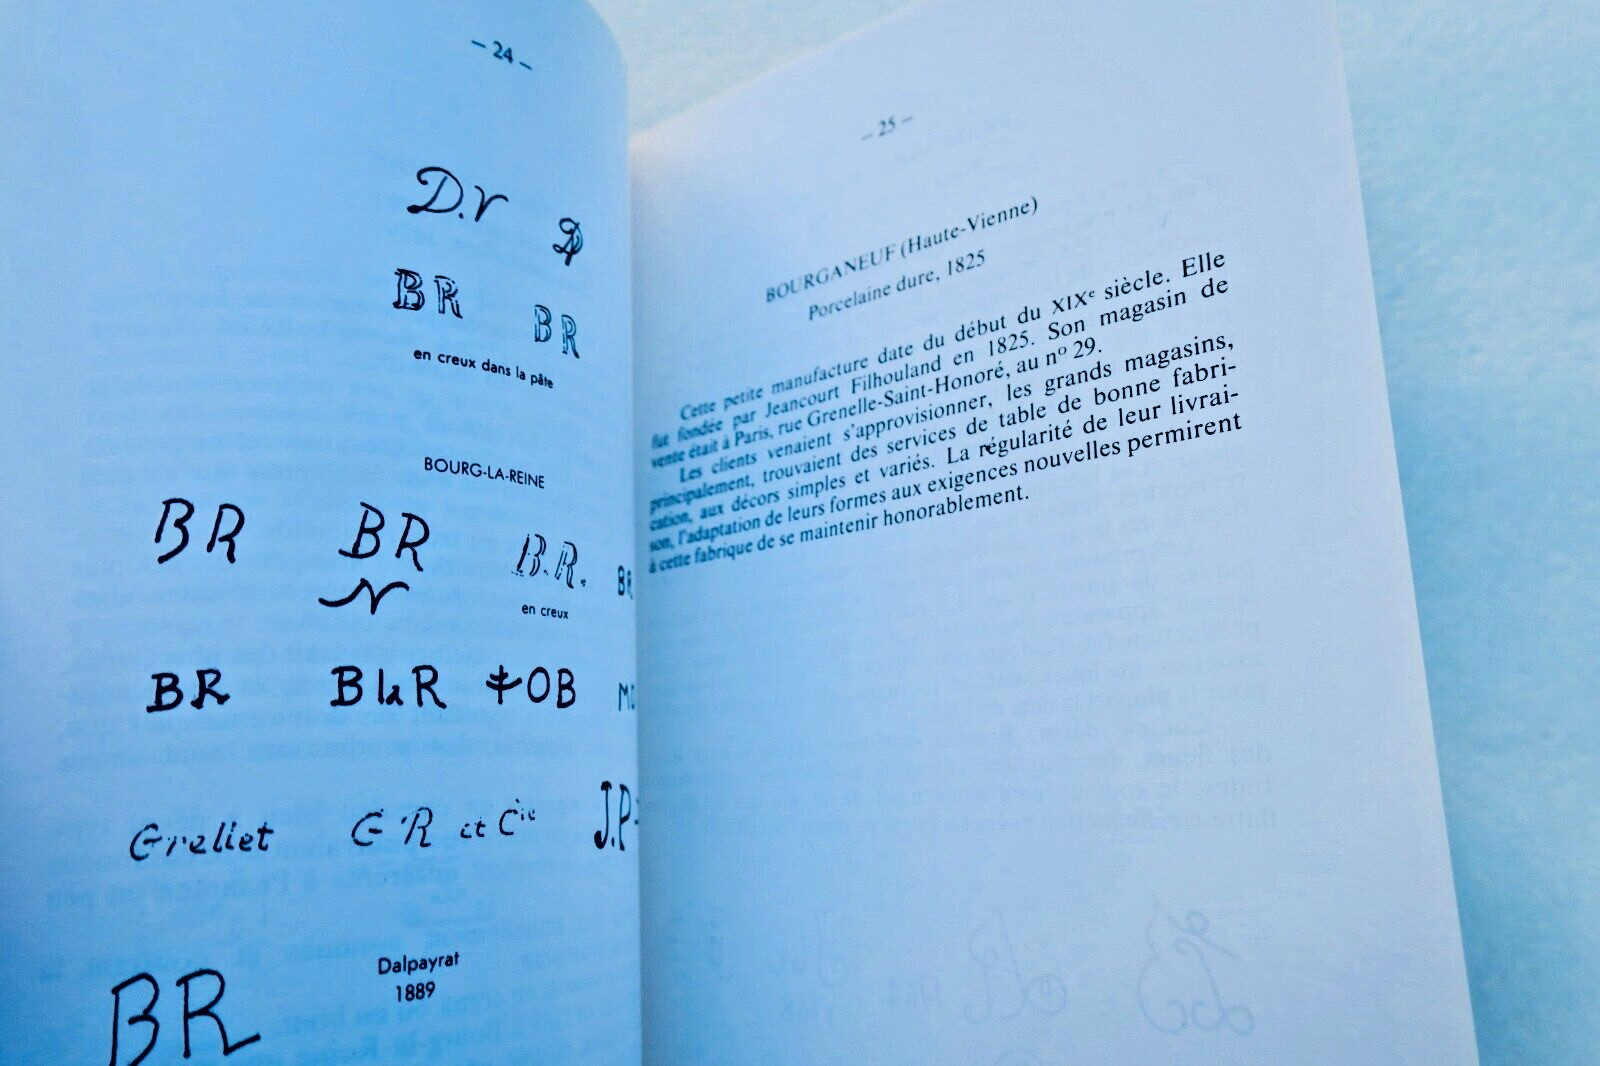 – 24 –
D.V
BR
BR
en creux dans la pâte
BOURG-LA-REINE
BR
BR
B.R.
BR
N
en creux
BR
B la R
OB
Grellet
G R et Cie
J.P
Dalpayrat
1889
BR
– 25 –
BOURGANEUF (Haute-Vienne)
Porcelaine dure, 1825
Cette petite manufacture date du début du XIXe siècle. Elle
fut fondée par Jeancourt Filhouland en 1825. Son magasin de
vente était à Paris, rue Grenelle-Saint-Honoré, au nº 29.
Les clients venaient s'approvisionner, les grands magasins,
principalement, trouvaient des services de table de bonne fabri-
cation, aux décors simples et variés. La régularité de leur livrai-
son, l'adaptation de leurs formes aux exigences nouvelles permirent
à cette fabrique de se maintenir honorablement.